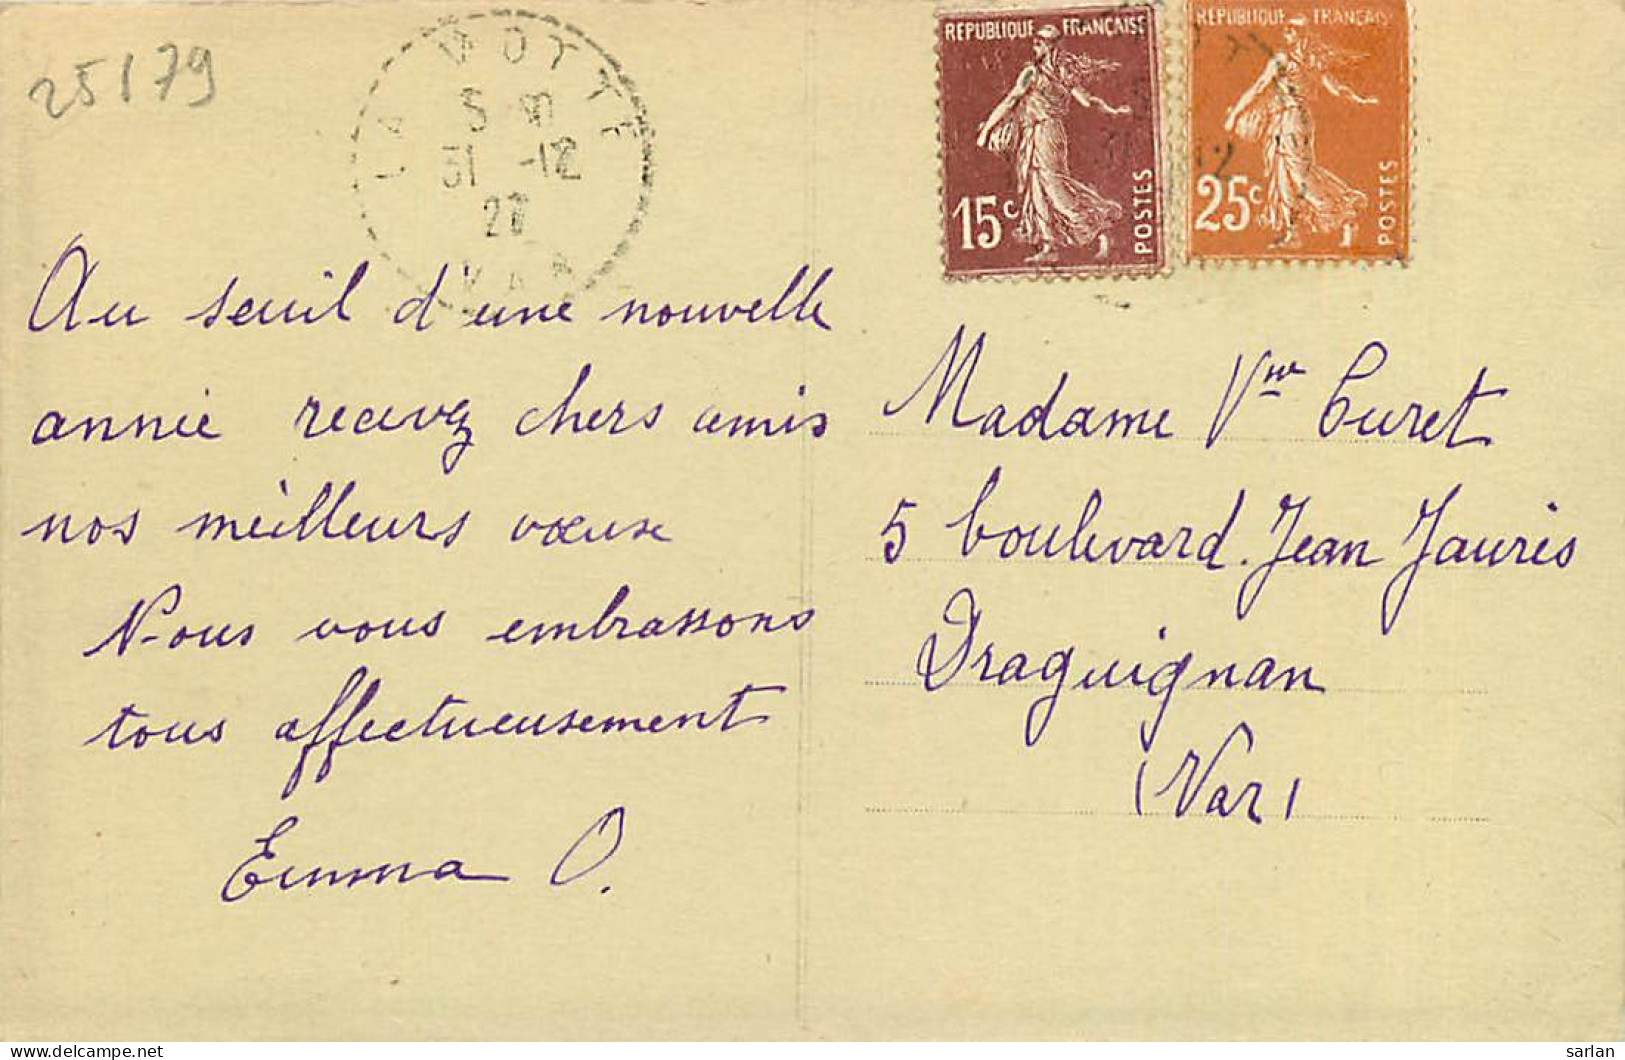 25179
LA MOTTE
5 m
31 -12
27
VAR
REPUBLIQUE FRANÇAISE
15c
POSTES
REPUBLIQUE FRANÇAISE
25c
POSTES
Au seuil d'une nouvelle
année recevez chers amis
nos meilleurs vœuxe
Nous vous embrassons
tous affectueusement
Emma O.
Madame Vve Curet
5 boulevard Jean Jaurès
Draguignan
(Var)
www.delcampe.net
sarlan